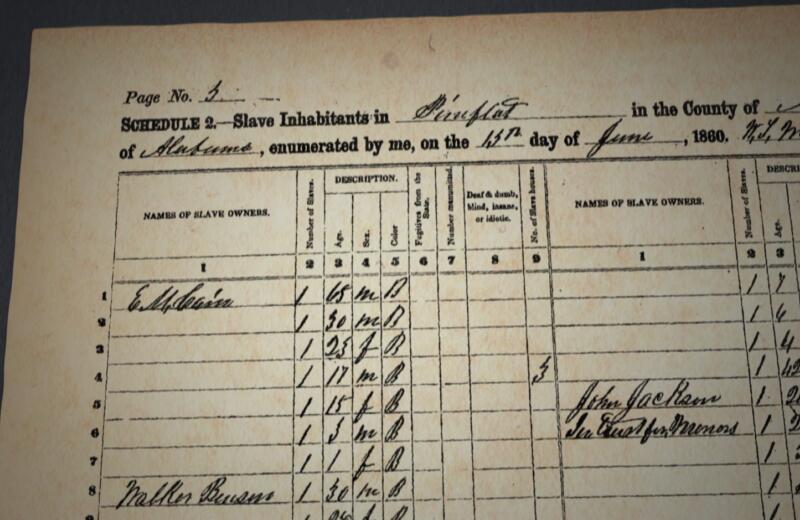 Page No. 3
SCHEDULE 2.—Slave Inhabitants in Pineflat in the County of
of Alabama, enumerated by me, on the 15th day of June, 1860.
NAMES OF SLAVE OWNERS. Number of Slaves. DESCRIPTION. Age. Sex. Color Fugitives from the State. Number manumitted. Deaf & dumb, blind, insane, or idiotic. No. of Slave houses. NAMES OF SLAVE OWNERS. Number of Slaves. DESCRI Age.
1 2 3 4 5 6 7 8 9 1 2 3
1 E. McCain 1 65 m B 1 7
2 1 30 m B 1 6
3 1 23 f B 1 4
4 1 17 m B 3 1 42
5 1 15 f B John Jackson 1
6 1 3 m B In Trust for Menors 1
7 1 1 f B 1
8 Walker Benson 1 30 m B 1